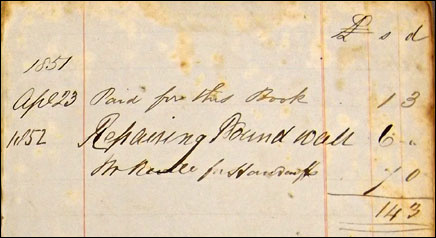 £ s d
1851
Apl 23 Paid for this Book . 1 3
1852 Repairing Pound wall 6 "
Mr for Handcuffs 7 0
14 3